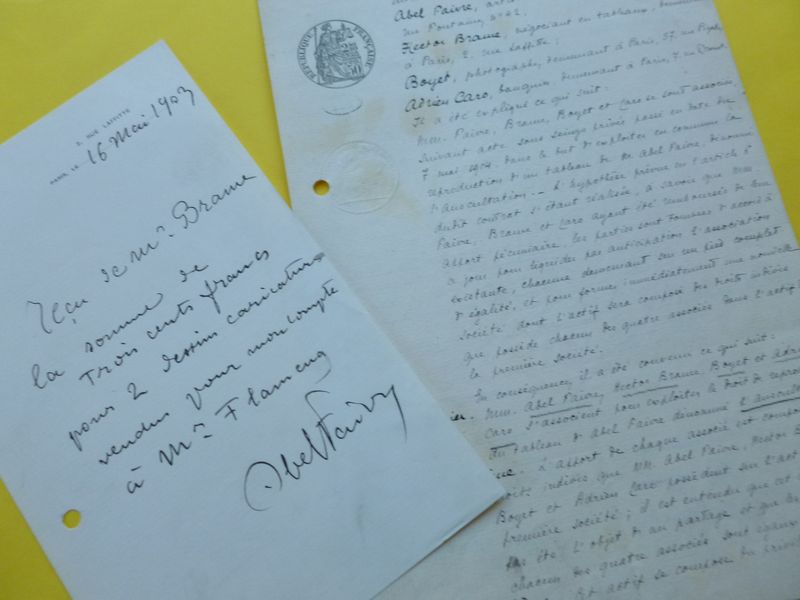 2, RUE LAFFITTE
PARIS, LE 16 Mai 1903
Reçu de Mr. Brame
la somme de
Trois cents francs
pour 2 dessins caricature
vendus pour mon compte
à Mr. Flameng
Abel Faivre
RÉPUBLIQUE FRANÇAISE
Abel Faivre,
Hector Brame, négociant en tableaux,
à Paris, 2, rue Laffitte;
Boyet, photographe, demeurant à Paris, 37, rue
Adrien Caro, banquier, demeurant à Paris, 7,
Il a été expliqué ce qui suit:
MM. Faivre, Brame, Boyet et Caro se sont associés,
suivant acte sous seings privés passé en date du
7 mai 1904, dans le but d'exploiter en commun la
reproduction d'un tableau de M. Abel Faivre, dénommé
l'auscultation. — L'hypothèse prévue en l'article 8
dudit contrat s'étant réalisée, à savoir que MM.
Faivre, Brame et Caro ayant été remboursés de leur
apport pécuniaire, les parties sont tombées d'accord à
ce jour pour liquider par anticipation l'association
existante, chacune demeurant sur un pied complet
d'égalité, et pour former immédiatement une nouvelle
société dont l'actif sera composé des droits indivis
que possède chacun des quatre associés dans l'actif
la première société.
En conséquence, il a été convenu ce qui suit:
MM. Abel Faivre, Hector Brame, Boyet et Adrien
Caro s'associent pour exploiter le droit de
du tableau d'Abel Faivre dénommé l'auscul
L'apport de chaque associé est composé
droits indivis que MM. Abel Faivre, Hector B
Boyet et Adrien Caro possèdent sur l'act
première société; il est entendu que cet
pas été l'objet d'un partage et que les
chacun des quatre associés sont égaux
et actif se compose du